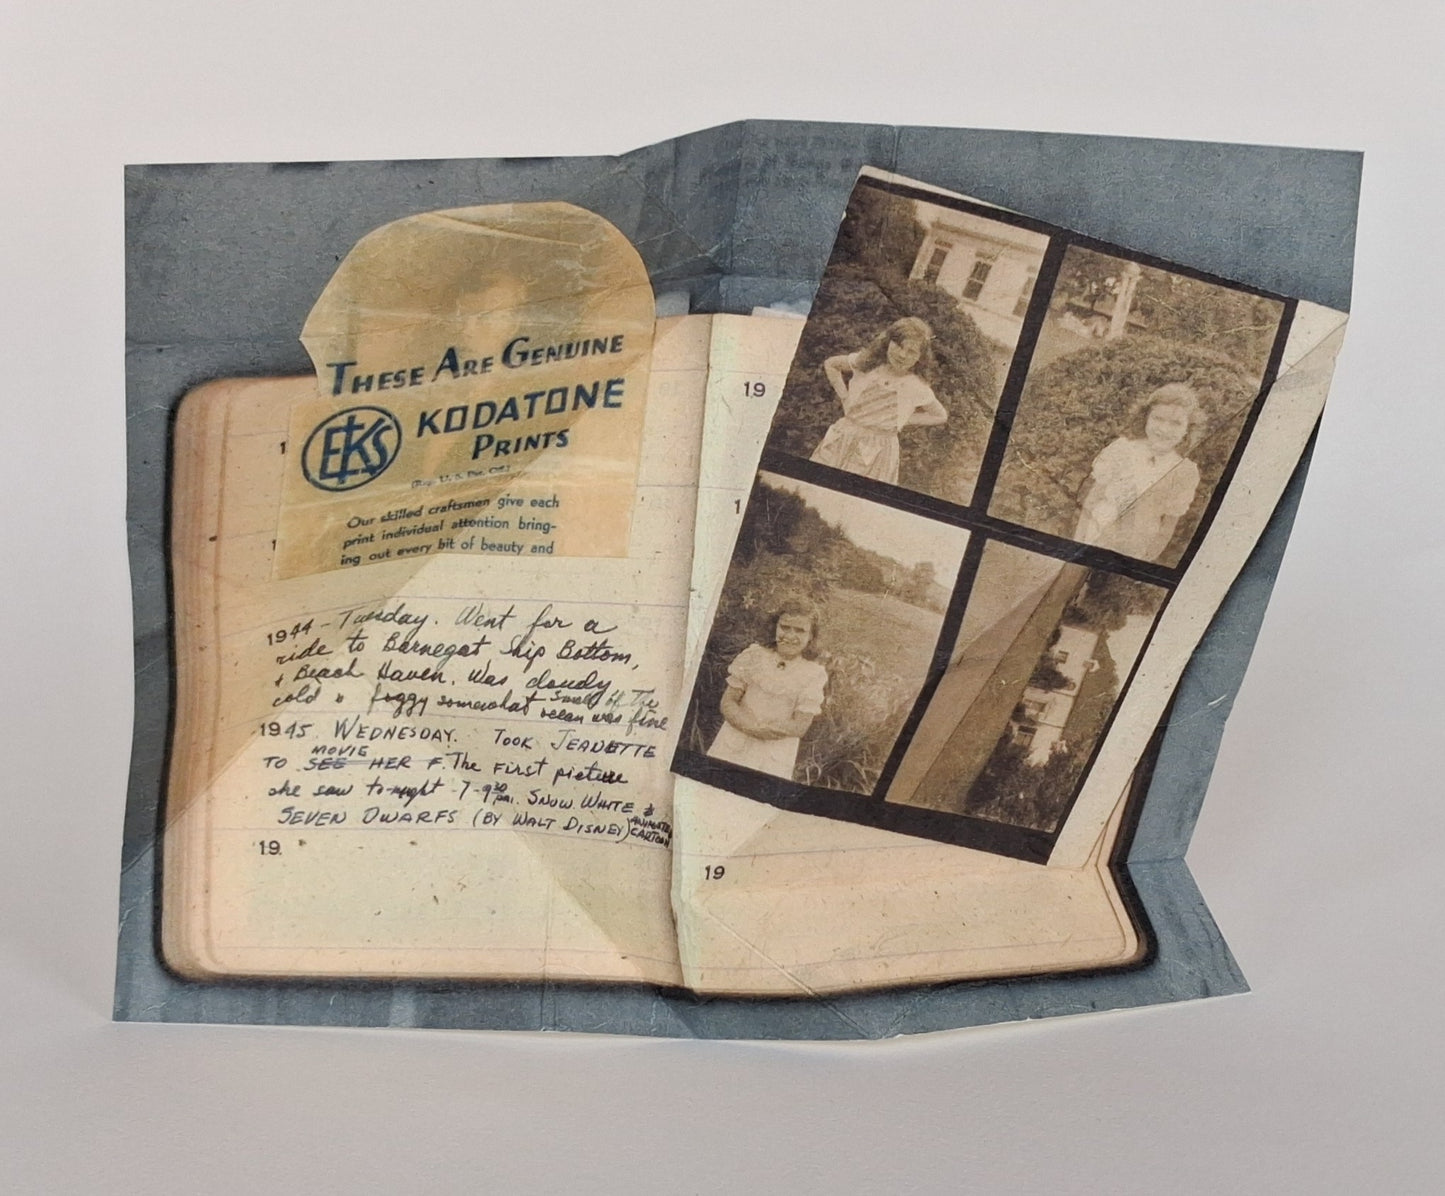 THESE ARE GENUINE
EKS KODATONE
PRINTS
(Reg. U. S. Pat. Off.)
Our skilled craftsmen give each
print individual attention bring-
ing out every bit of beauty and
1944 - Tuesday. Went for a
ride to Barnegat Ship Bottom,
+ Beach Haven. Was cloudy
cold & foggy somewhat smell of the
ocean was fine
1945. WEDNESDAY. TOOK JEANETTE
MOVIE
TO SEE HER F. The FIRST picture
she saw to-night -7-9³⁰ pm. SNOW WHITE &
SEVEN DWARFS (BY WALT DISNEY) ANIMATED
CARTOON
19
19
1
19